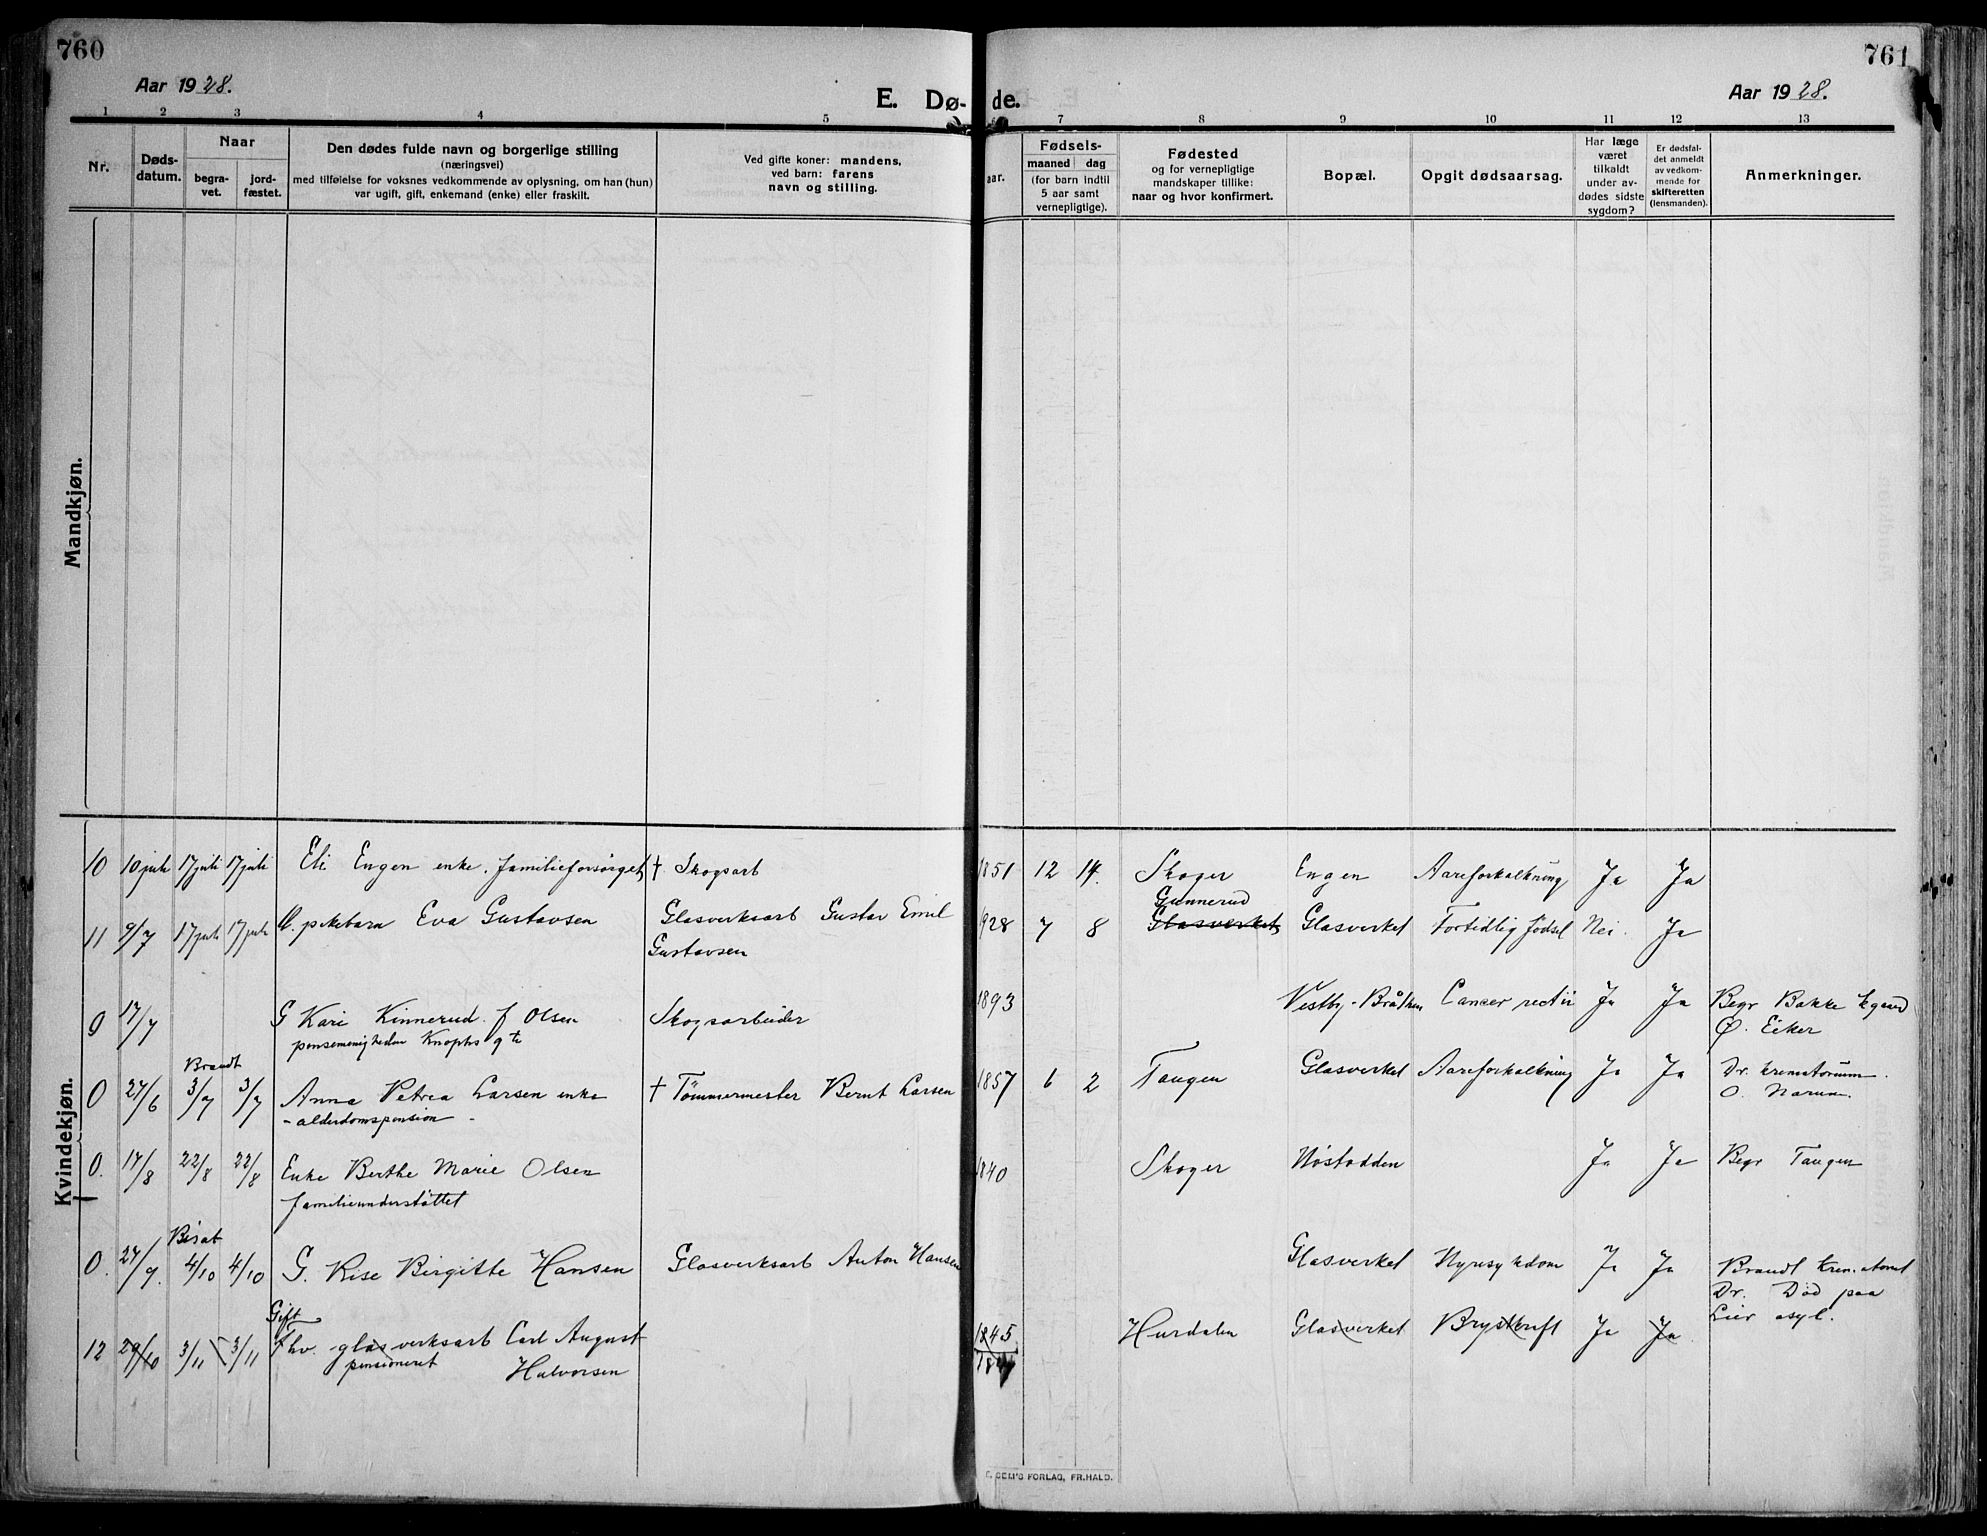 760
761
Aar 1928.
E. Dø-
de.
Aar 1928.
1 2 3 4 5 7 8 9 10 11 12 13
Nr.
Døds-
datum.
Naar
begra-
vet.
jord-
fæstet.
Den dødes fulde navn og borgerlige stilling
(næringsvei)
med tilføielse for voksnes vedkommende av oplysning, om han (hun)
var ugift, gift, enkemand (enke) eller fraskilt.
Ved gifte koner: mandens,
ved barn: farens
navn og stilling.
aar.
Fødsels-
maaned dag
(for barn indtil
5 aar samt
vernepligtige).
Fødested
og for vernepligtige
mandskaper tillike:
naar og hvor konfirmert.
Bopæl.
Opgit dødsaarsag.
Har læge
været
tilkaldt
under av-
dødes sidste
sygdom?
Er dødsfal-
det anmeldt
av vedkom-
mende for
skifteretten
(lensmanden).
Anmerkninger.
Mandkjøn.
Kvindekjøn.
10 10 juli 17 juli 17 juli Eli Engen enke. familieforsørget † Skogsarb 1851 12 14. Skoger Engen Aareforkalkning Ja Ja
Gunnerud
11 9/7 17 juli 17 juli U. pikebarn Eva Gustavsen Glasverksarb Gustav Emil 928 7 8 Glasverket Glasverket Fortidlig fødsel Nei. Ja
Gustavsen
0 17/7 G Kari Kinnerud. f Olsen Skogsarbeider 1893 Vestby-Bråthen Cancer recti Ja Ja Begr Bakke
pensemenigheden Knophs gt Ø. Eiker
Brandt
0 27/6 3/7 3/7 Anna Petrea Larsen enke † Tømmermester Bernt Larsen 1857 6 2 Tangen Glasverket Aareforkalkning Ja Ja Dr. krematorium.
- alderdomspension - O. Narum.
0. 17/8 22/8 22/8 Enke Berthe Marie Olsen 1840 Skoger Nøstodden Ja Ja Begr Tangen
familieunderstøttet
Bisat
0. 27/9. 4/10 4/10 G. Rise Birgitte Hansen Glasverksarb Anton Hansen Glasverket Nyresykdom Ja Ja Brandt
Dr. Død paa
Lier asyl.
Gift
12 29/10 3/11 3/11 Fhv. glasverksarb Carl August 1845 Hurdalen Glasverket Brystkreft Ja Ja
pensioneret Halvorsen
SEM'S FORLAG, FR.HALD.